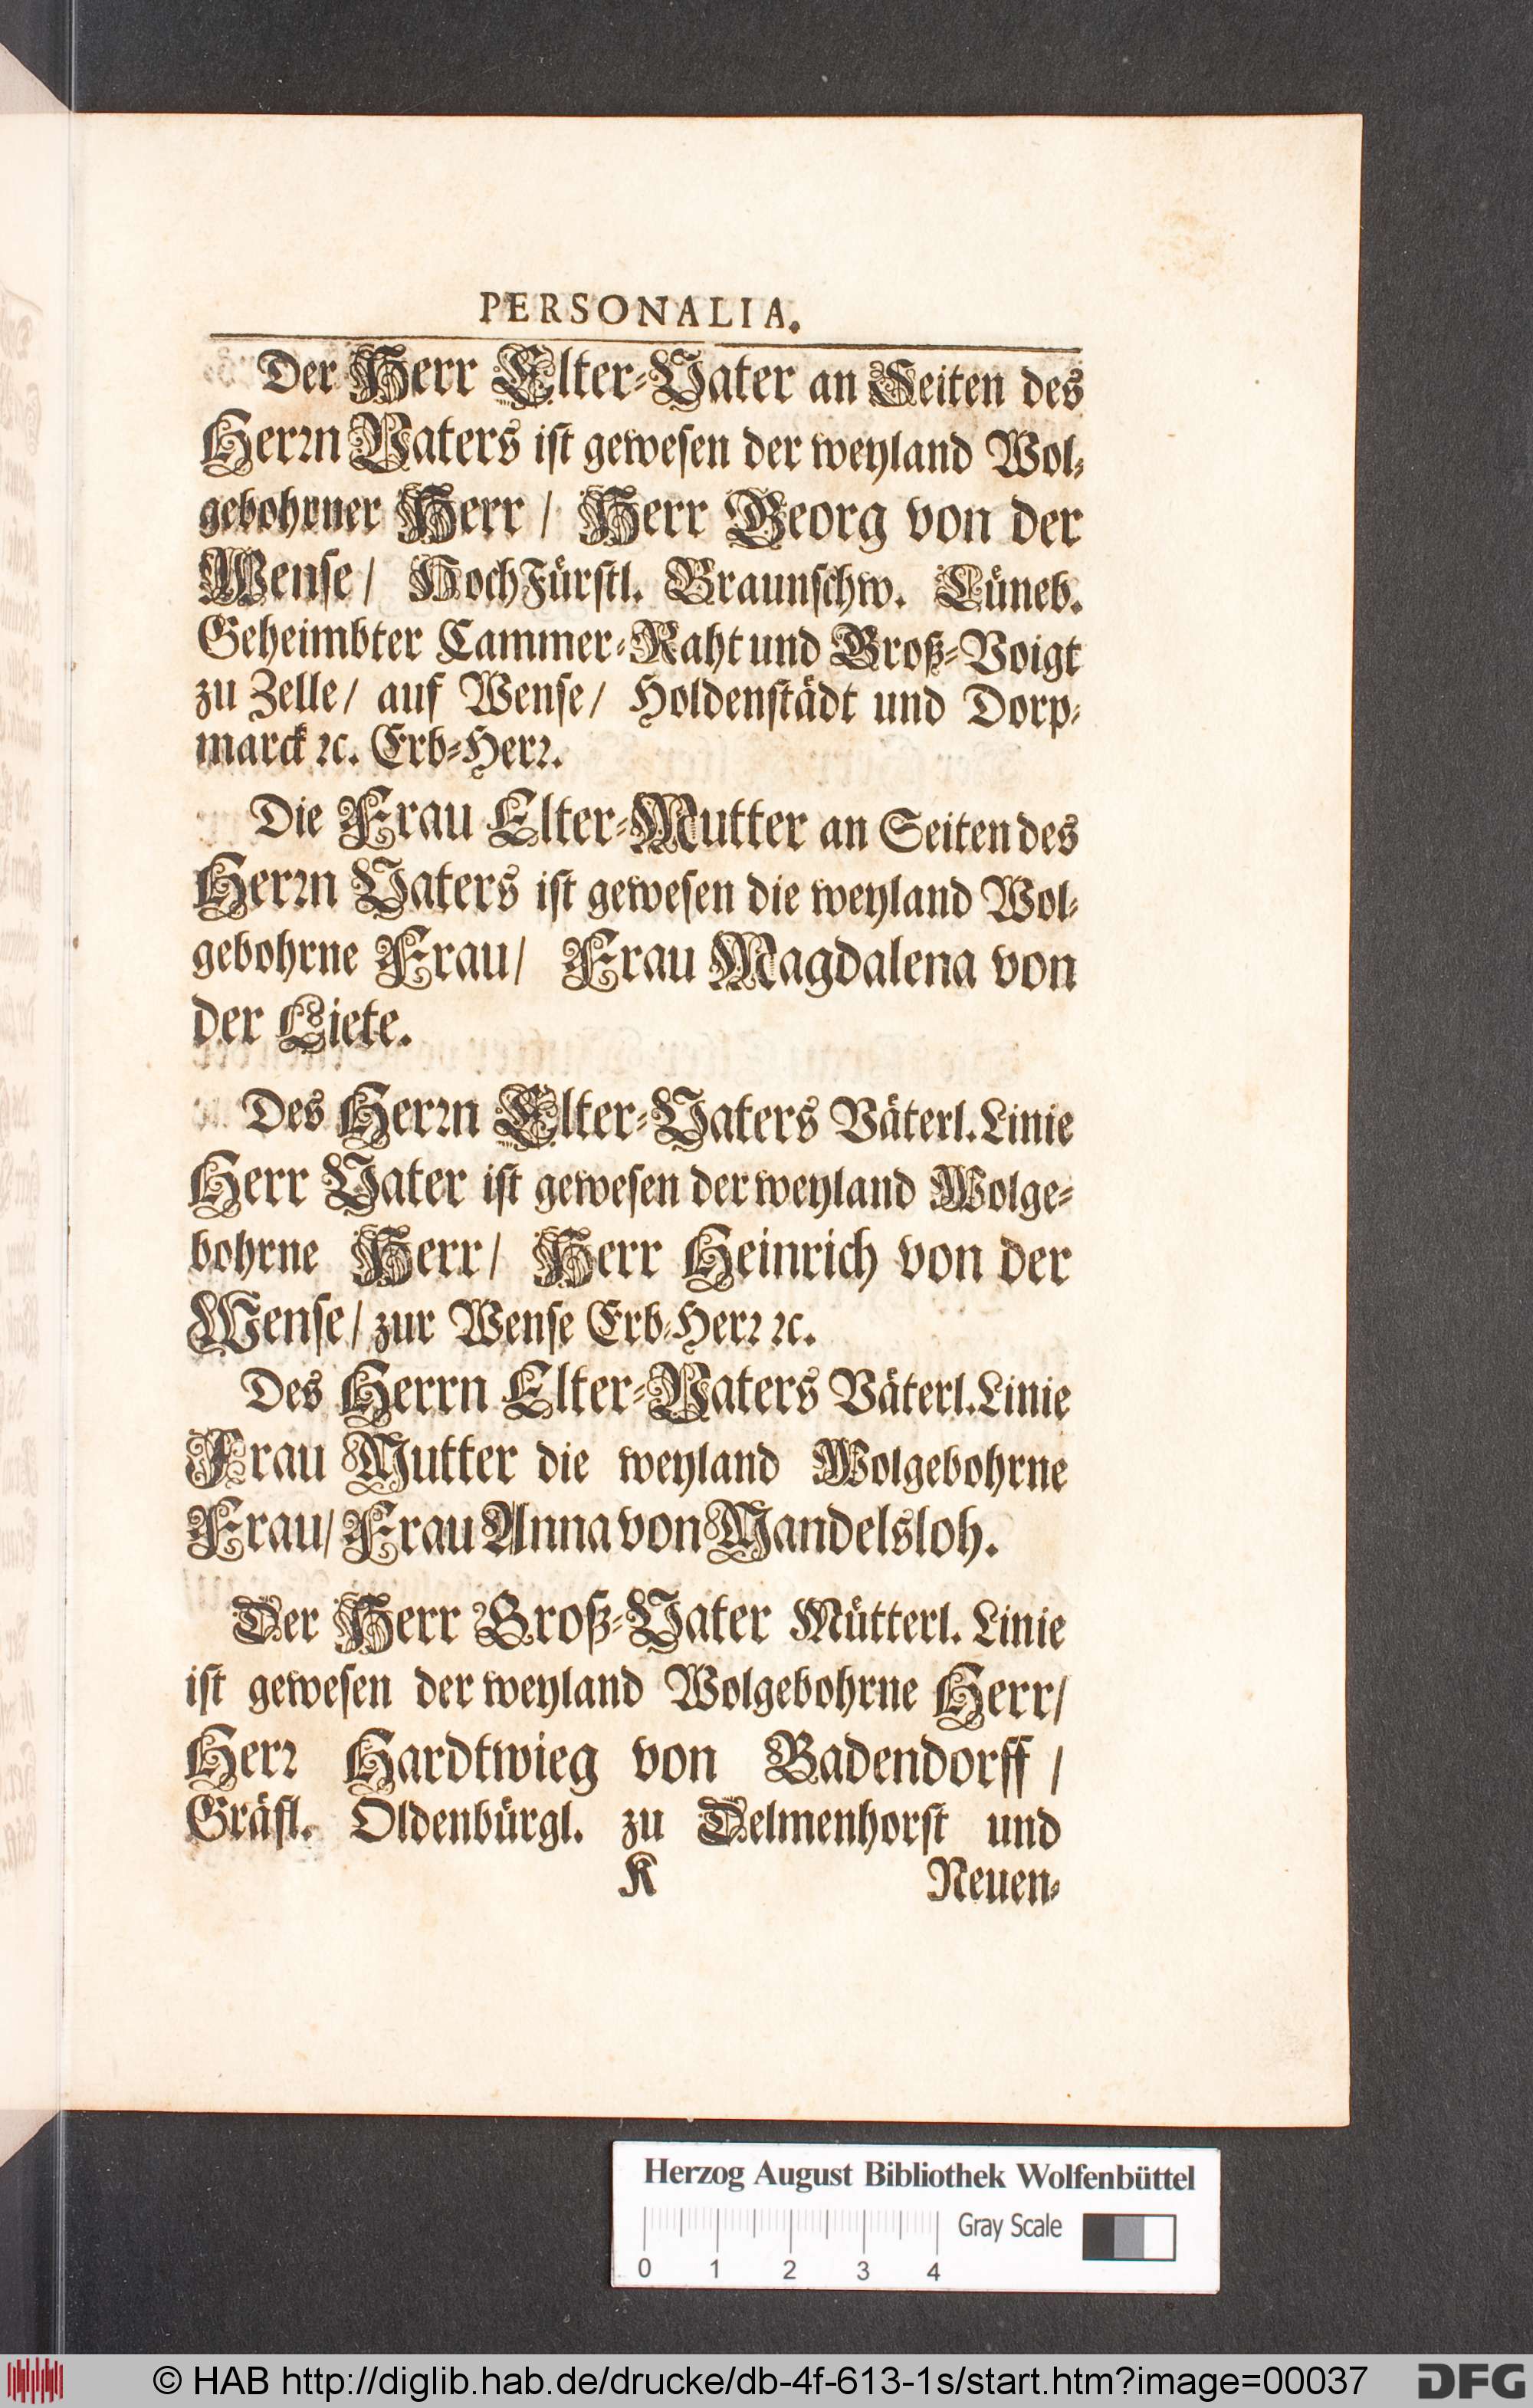 PERSONALIA.
Der Herr Elter-Vater an Seiten des
Herrn Vaters ist gewesen der weyland Wol-
gebohrner Herr / Herr Georg von der
Wense / HochFürstl. Braunschw. Lüneb.
Geheimbter Cammer-Raht und Groß-Voigt
zu Zelle / auf Wense / Holdenstädt und Dorp-
marck ꝛc. Erb-Herꝛ.
Die Frau Elter-Mutter an Seiten des
Herꝛn Vaters ist gewesen die weyland Wol-
gebohrne Frau / Frau Magdalena von
der Liete.
Des Herꝛn Elter-Vaters Väterl. Linie
Herr Vater ist gewesen der weyland Wolge-
bohrne Herr / Herr Heinrich von der
Wense / zur Wense Erb-Herꝛ ꝛc.
Des Herrn Elter-Vaters Väterl. Linie
Frau Mutter die weyland Wolgebohrne
Frau / Frau Anna von Mandelsloh.
Der Herr Groß-Vater Mütterl. Linie
ist gewesen der weyland Wolgebohrne Herr /
Herꝛ Hardtwieg von Badendorff /
Gräfl. Oldenbürgl. zu Delmenhorst und
K Neuen-
Herzog August Bibliothek Wolfenbüttel
Gray Scale
0 1 2 3 4
© HAB http://diglib.hab.de/drucke/db-4f-613-1s/start.htm?image=00037 DFG